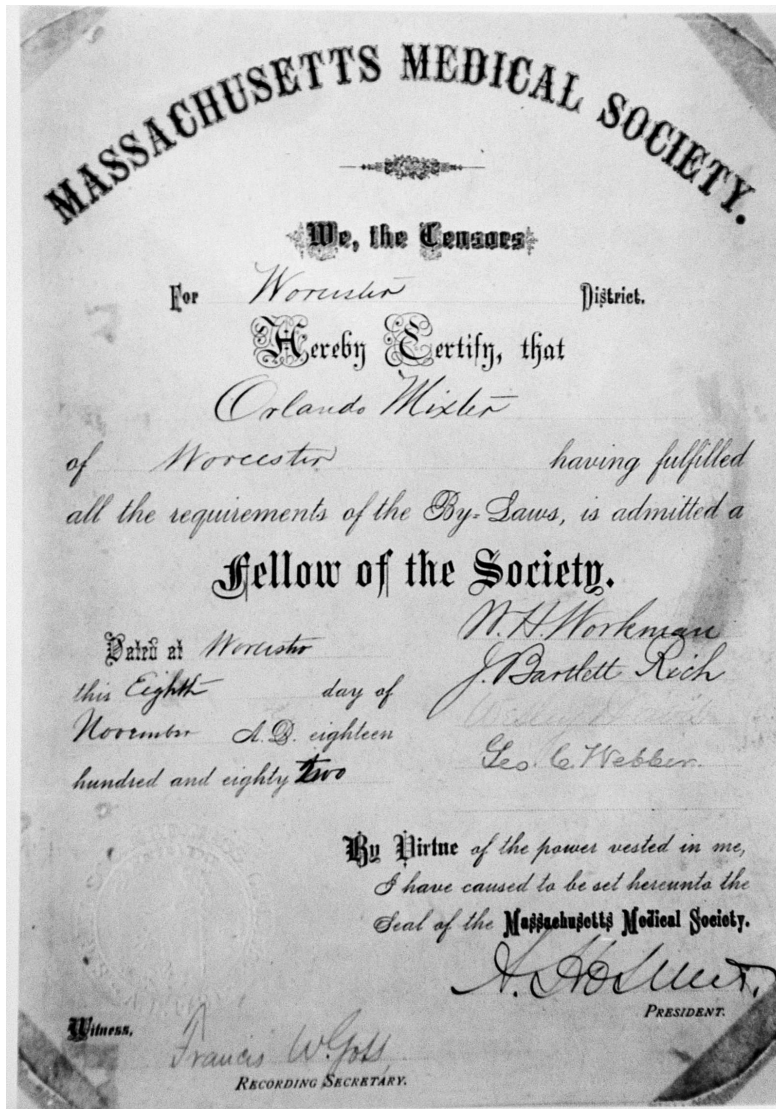 MASSACHUSETTS MEDICAL SOCIETY.
We, the Censors
For Worcester District.
Hereby Certify, that
Orlando Mixter
of Worcester having fulfilled
all the requirements of the By-Laws, is admitted a
Fellow of the Society.
Dated at Worcester
this Eighth day of
November A.D. eighteen
hundred and eighty Two
W. H. Workman
J. Bartlett Rich
Geo. C. Webber.
By Virtue of the power vested in me,
I have caused to be set hereunto the
Seal of the Massachusetts Medical Society.
PRESIDENT.
Witness,
Francis W. Goss
RECORDING SECRETARY.